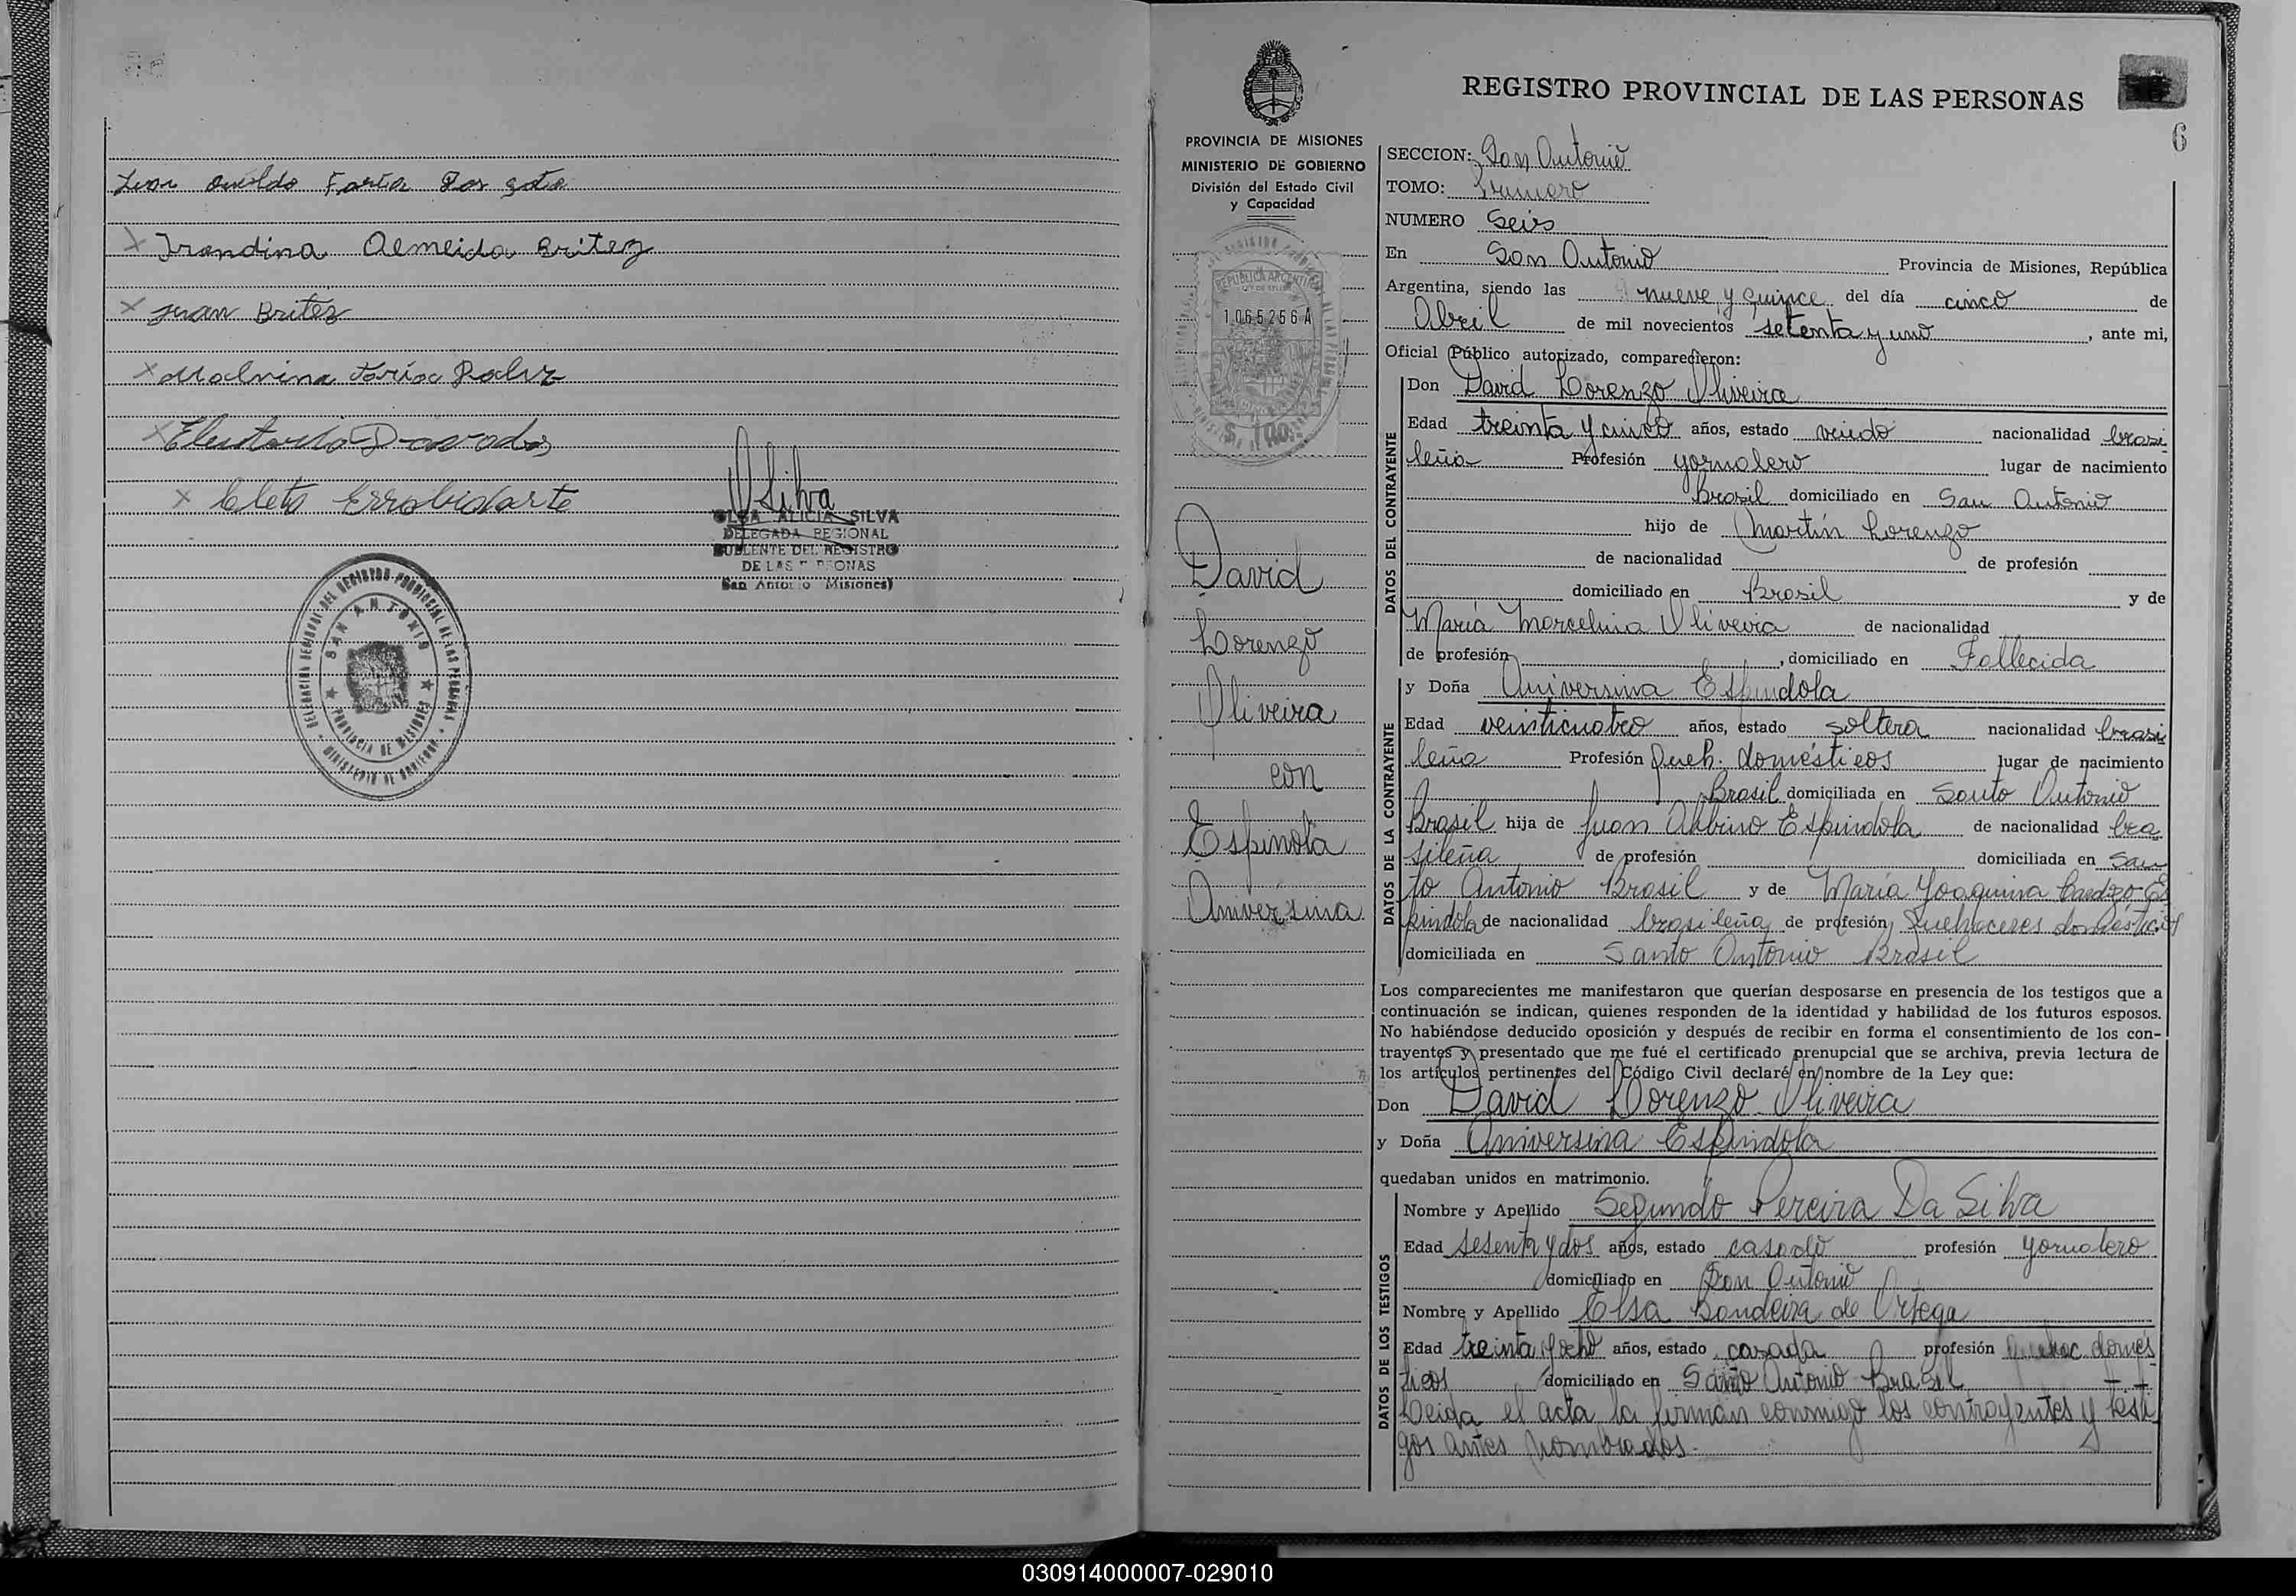 Juan Osvaldo Faria
Irondina Almeida Britez
Juan Britez
Malvina Faria
Cleto Errobidarte
Silva
OLGA ALICIA SILVA
DELEGADA REGIONAL
SUPLENTE DEL REGISTRO
DE LAS PERSONAS
San Antonio (Misiones)
DELEGACION REGIONAL DEL REGISTRO PROVINCIAL DE LAS PERSONAS
SAN ANTONIO
PROVINCIA DE MISIONES
MINISTERIO DE GOBIERNO
PROVINCIA DE MISIONES
MINISTERIO DE GOBIERNO
División del Estado Civil
y Capacidad
REPUBLICA ARGENTINA
1065256A
$ 100.-
David
Lorenzo
Oliveira
con
Espinola
Aniversina
REGISTRO PROVINCIAL DE LAS PERSONAS
6
SECCION: San Antonio
TOMO: Primero
NUMERO Seis
En San Antonio Provincia de Misiones, República
Argentina, siendo las nueve y quince del día cinco de
Abril de mil novecientos setenta y uno, ante mi,
Oficial Público autorizado, comparecieron:
DATOS DEL CONTRAYENTE
Don David Lorenzo Oliveira
Edad treinta y cinco años, estado viudo nacionalidad brasi
leña Profesión yornalero lugar de nacimiento
Brasil domiciliado en San Antonio
hijo de Martín Lorenzo
de nacionalidad de profesión
domiciliado en Brasil y de
María Marcelina Oliveira de nacionalidad
de profesión , domiciliado en Fallecida
DATOS DE LA CONTRAYENTE
y Doña Aniversina Espindola
Edad veinticuatro años, estado soltera nacionalidad brasi
leña Profesión Queh. domésticos lugar de nacimiento
Brasil domiciliada en Santo Antonio
Brasil hija de Juan Albino Espindola de nacionalidad bra
sileña de profesión domiciliada en San
to Antonio Brasil y de María Yoaquina Es
pindola de nacionalidad brasileña de profesión Quehaceres domésticos
domiciliada en Santo Antonio Brasil
Los comparecientes me manifestaron que querían desposarse en presencia de los testigos que a
continuación se indican, quienes responden de la identidad y habilidad de los futuros esposos.
No habiéndose deducido oposición y después de recibir en forma el consentimiento de los con-
trayentes y presentado que me fué el certificado prenupcial que se archiva, previa lectura de
los artículos pertinentes del Código Civil declaré en nombre de la Ley que:
Don David Lorenzo Oliveira
y Doña Aniversina Espindola
quedaban unidos en matrimonio.
DATOS DE LOS TESTIGOS
Nombre y Apellido Segundo Pereira Da Silva
Edad sesenta y dos años, estado casado profesión yornalero
domiciliado en San Antonio
Nombre y Apellido Elsa Bandeira de Ortega
Edad treinta y ocho años, estado casada profesión Quehac. domés
ticos domiciliado en Santo Antonio Brasil
Leida el acta la firman conmigo los contrayentes y testi
gos antes nombrados.-
030914000007-029010